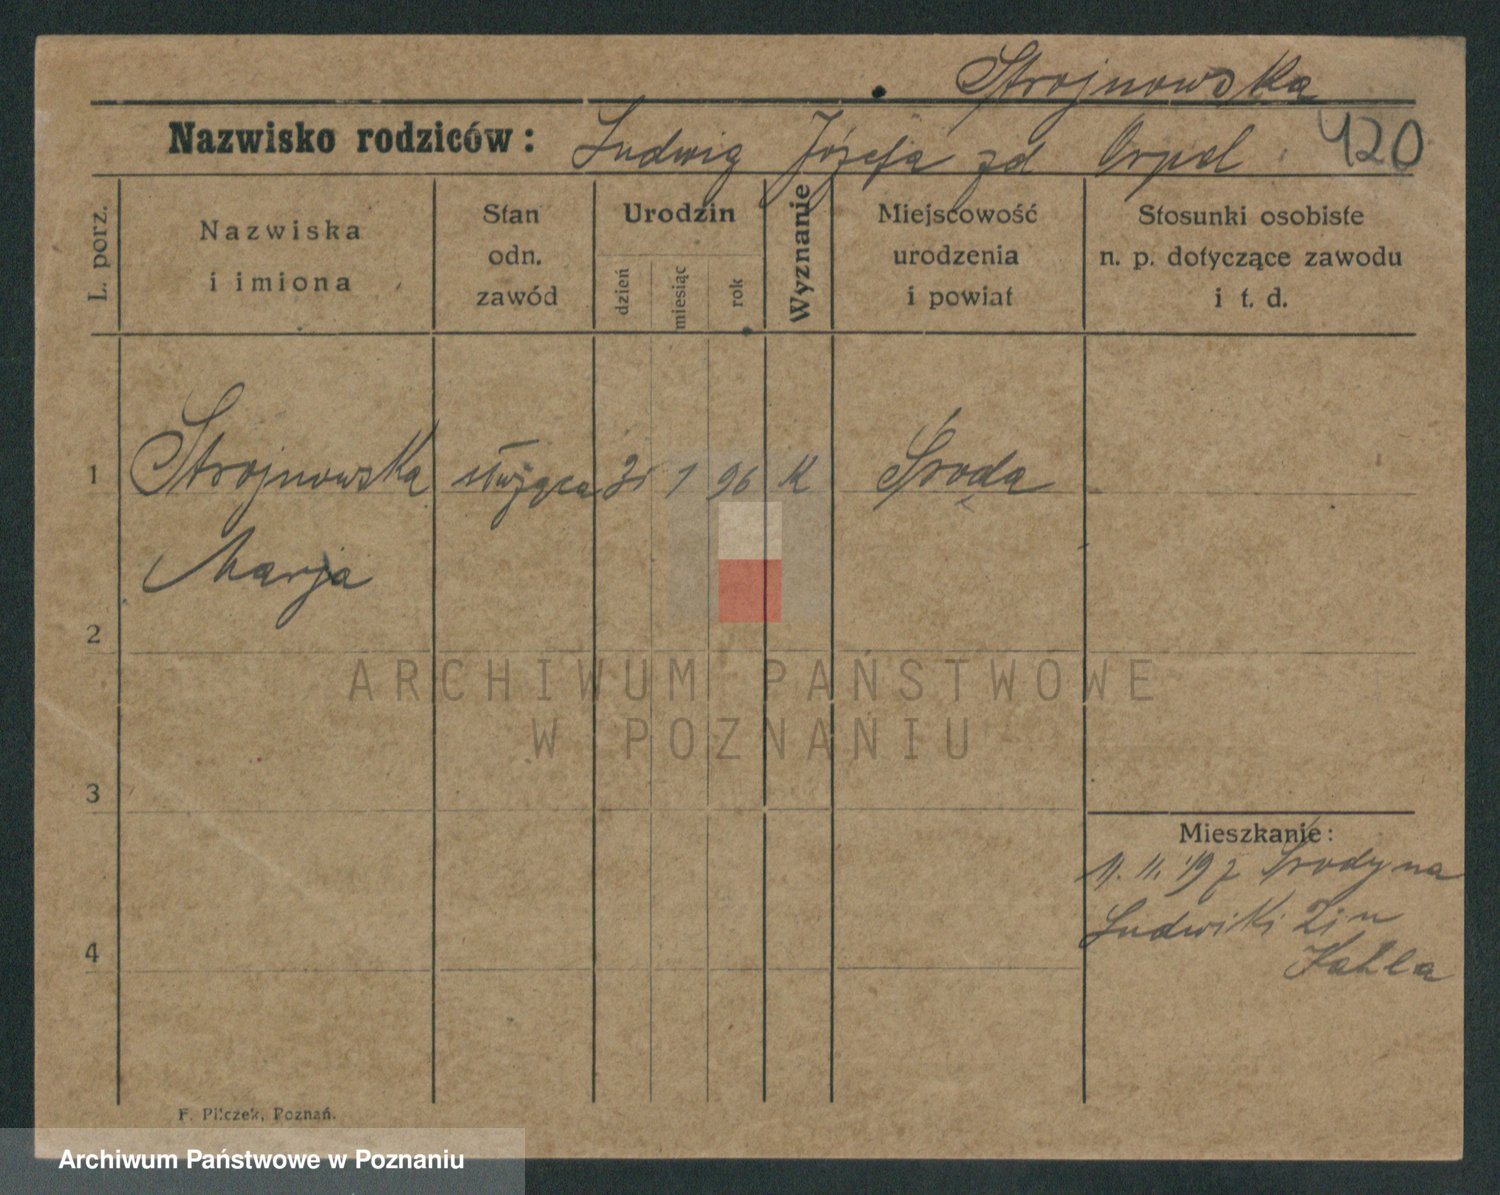 Strojnowska
Nazwisko rodziców: Ludwig Józefa zd Orpel 420
L. porz.
Nazwiska
i imiona
Stan
odn.
zawód
Urodzin
dzień
miesiąc
rok
Wyznanie
Miejscowość
urodzenia
i powiat
Stosunki osobiste
n. p. dotyczące zawodu
i t. d.
1 Strojnowska służąca 1 96 K Środa
Marja
2
3
4
Mieszkanie:
11. 11. 19 z Środy na
Ludwiki
F. Pilczek, Poznań.
ARCHIWUM PAŃSTWOWE
W POZNANIU
Archiwum Państwowe w Poznaniu